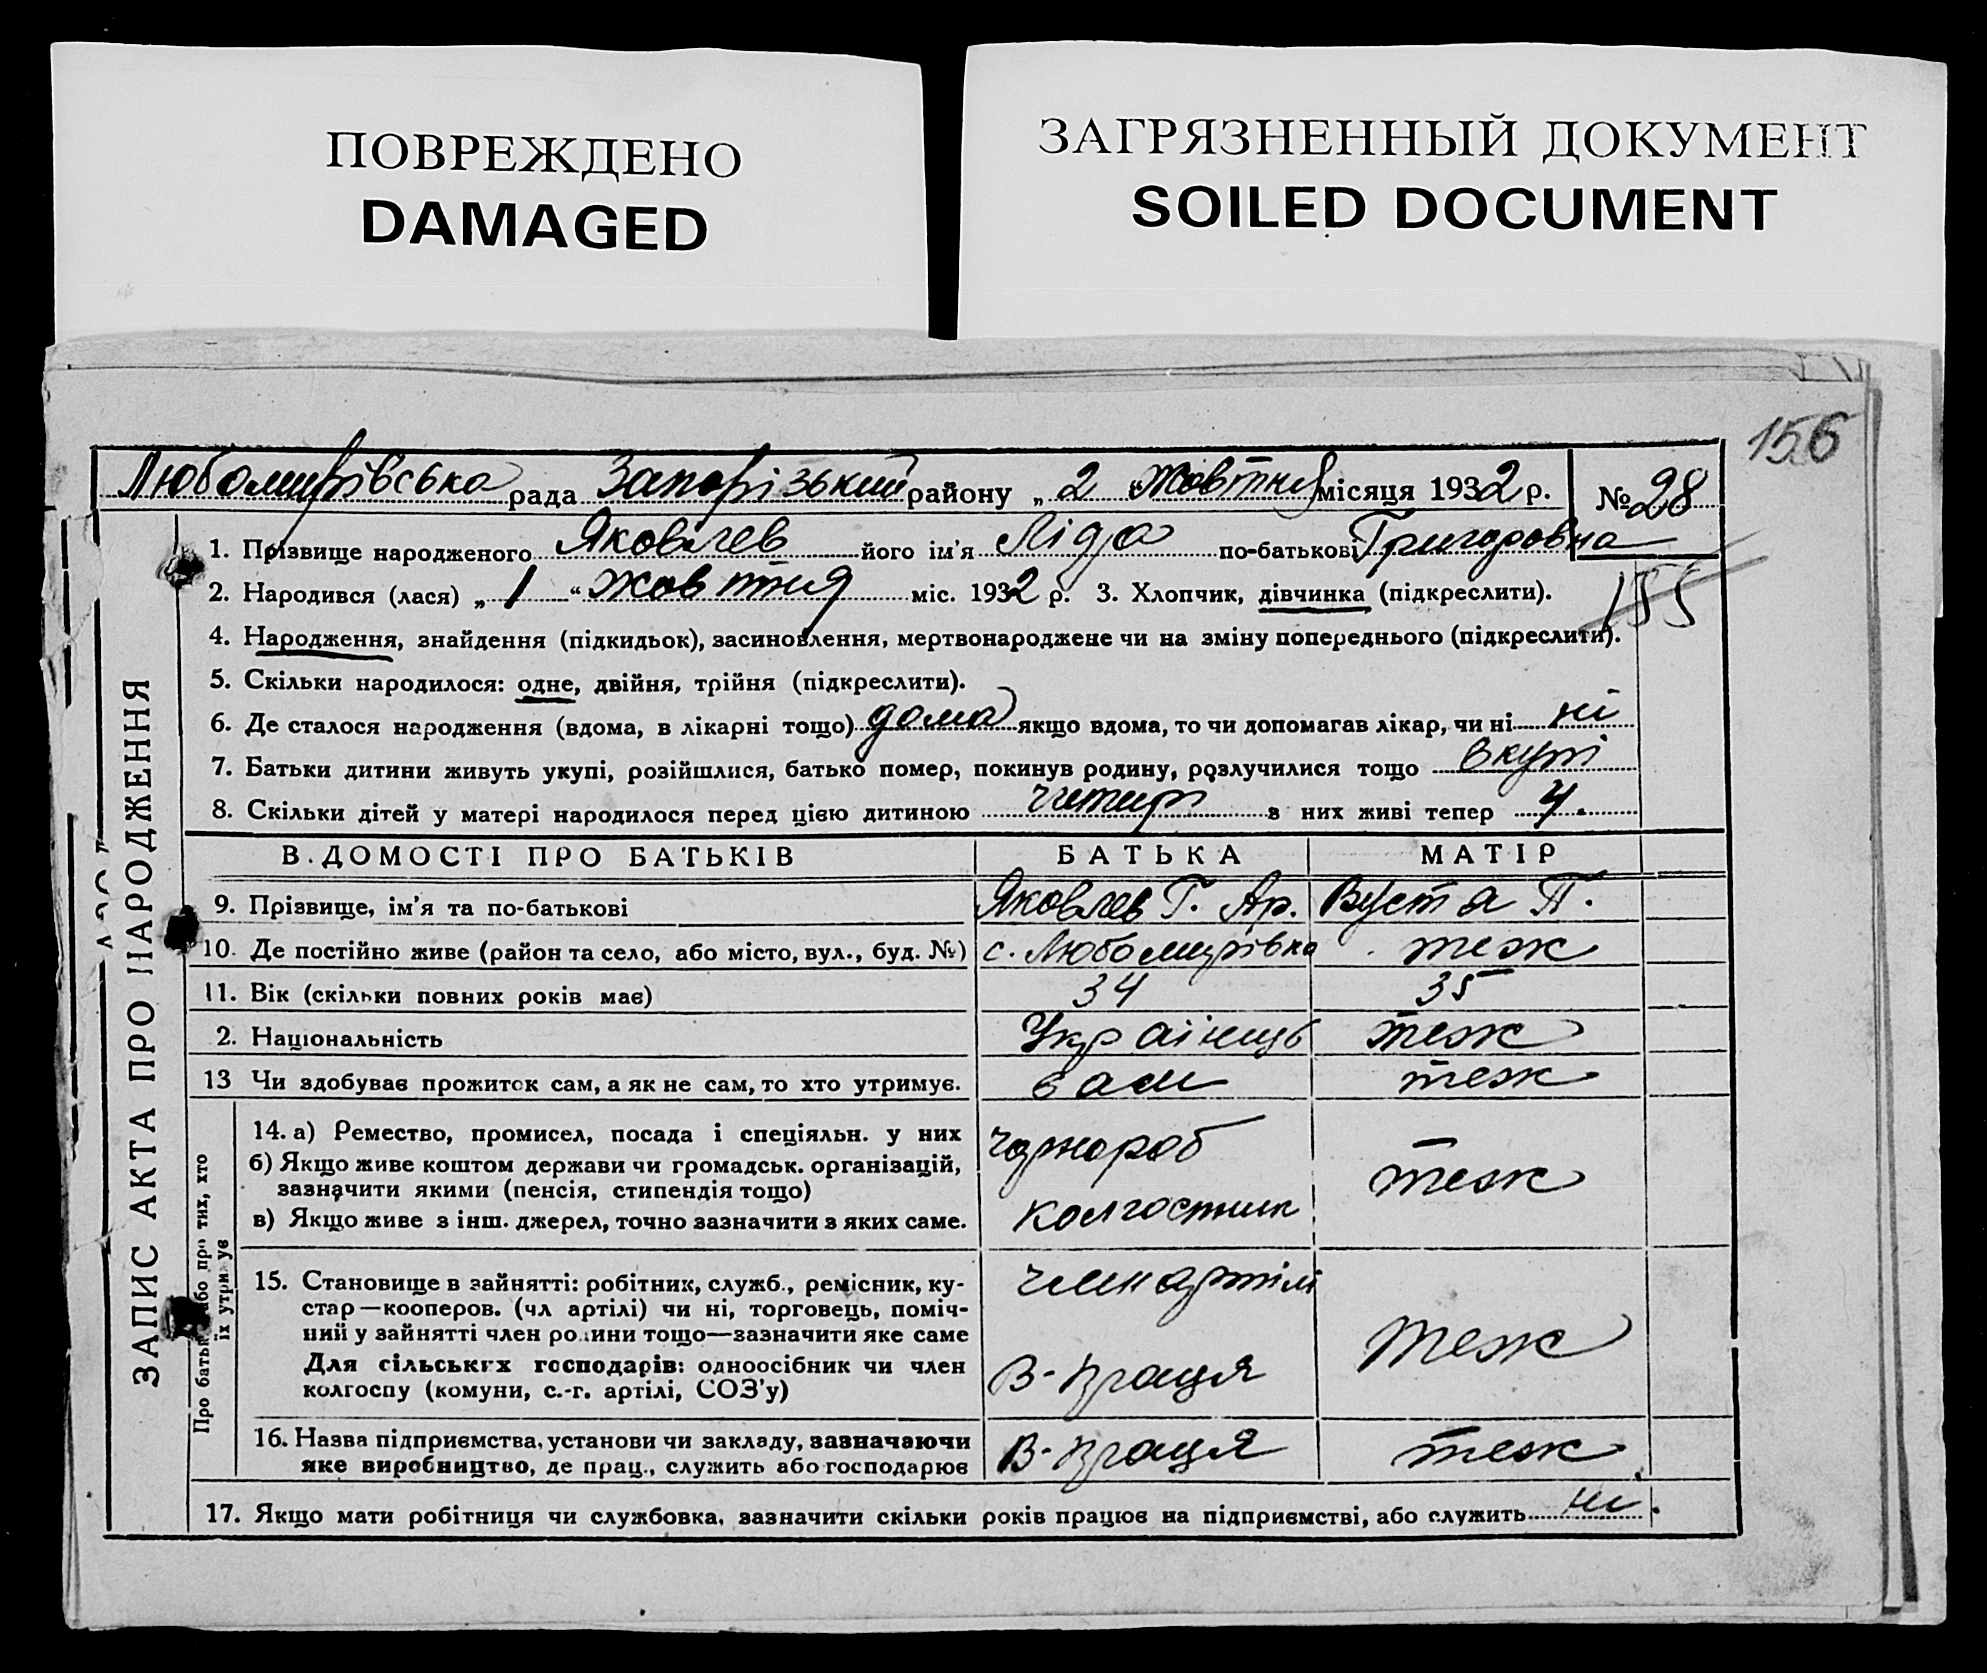 ПОВРЕЖДЕНО
DAMAGED
ЗАГРЯЗНЕННЫЙ ДОКУМЕНТ
SOILED DOCUMENT
156
Любомирівська рада Запорізький району „ 2 “ Жовтня місяця 1932 р. № 28
1. Прізвище народженого Яковлев його ім'я Ліда по-батькові Григоровна
2. Народився (лася) „ 1 “ жовтня міс. 1932 р. 3. Хлопчик, дівчинка (підкреслити).
155
4. Народження, знайдення (підкидьок), засиновлення, мертвонароджене чи на зміну попереднього (підкреслити).
5. Скільки народилося: одне, двійня, трійня (підкреслити).
6. Де сталося народження (вдома, в лікарні тощо) дома якщо вдома, то чи допомагав лікар, чи ні ні
7. Батьки дитини живуть укупі, розійшлися, батько помер, покинув родину, розлучилися тощо вкупі
8. Скільки дітей у матері народилося перед цією дитиною читири з них живі тепер 4.
В.ДОМОСТІ ПРО БАТЬКІВ БАТЬКА МАТІР
9. Прізвище, ім'я та по-батькові Яковлев Г. Ар. Вуста П.
10. Де постійно живе (район та село, або місто, вул., буд. №) с. Любомирівка теж
11. Вік (скільки повних років має) 34 35
2. Національність Українець теж
13 Чи здобував прожиток сам, а як не сам, то хто утримує. сам теж
14. а) Ремество, промисел, посада і спеціяльн. у них чорнороб
б) Якщо живе коштом держави чи громадськ. організацій, теж
зазначити якими (пенсія, стипендія тощо)
в) Якщо живе з інш. джерел, точно зазначити з яких саме. колгоспник
15. Становище в зайнятті: робітник, служб., ремісник, ку- член артілі
стар—кооперов. (чл артілі) чи ні, торговець, поміч-
ний у зайнятті член родини тощо—зазначити яке саме теж
Для сільських господарів: одноосібник чи член В-праця
колгоспу (комуни, с.-г. артілі, СОЗ'у)
16. Назва підприємства, установи чи закладу, зазначаючи В-праця теж
яке виробництво, де прац., служить або господарює
17. Якщо мати робітниця чи службовка, зазначити скільки років працює на підприємстві, або служить ні.
ЗАПИС АКТА ПРО НАРОДЖЕННЯ
Про батьк або про тих, хто
їх утримує